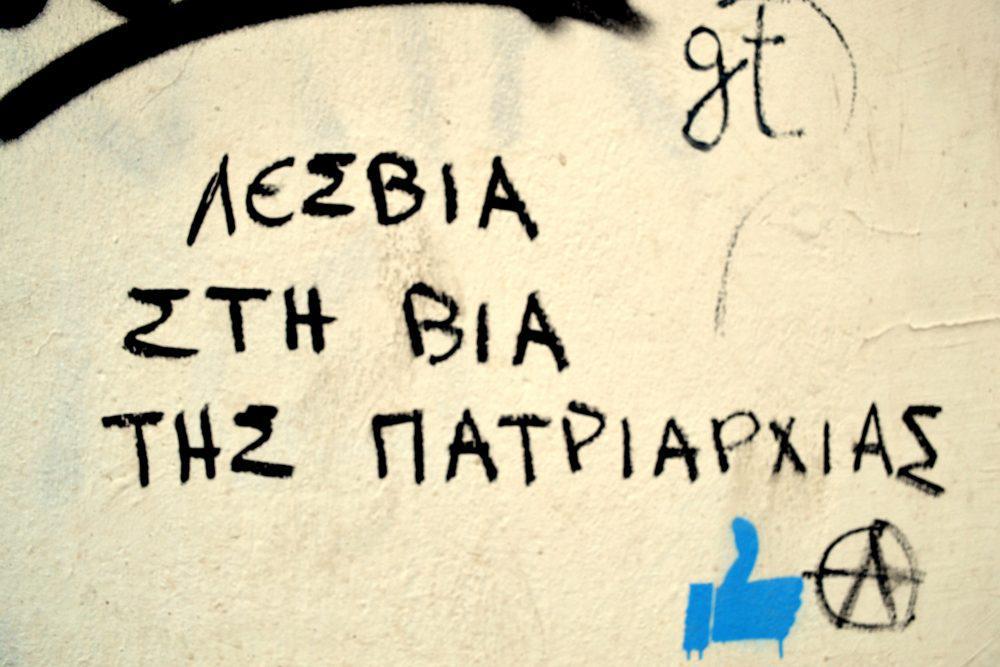 gt
ΛΕΣΒΙΑ
ΣΤΗ ΒΙΑ
ΤΗΣ ΠΑΤΡΙΑΡΧΙΑΣ